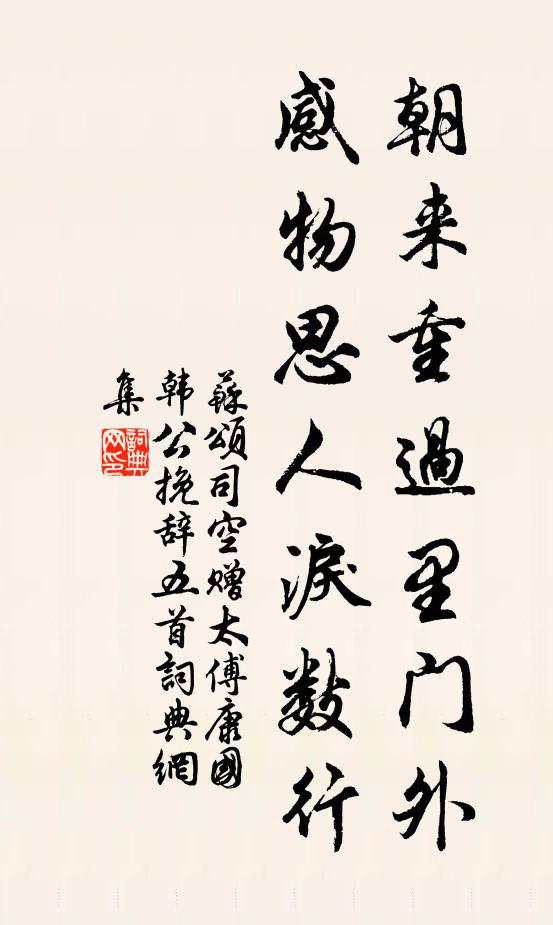 朝来重過里门外
感物思人淚数行
蘇頌司空赠太傅康國
韩公挽辞五首詞典網
集
詞典
网印